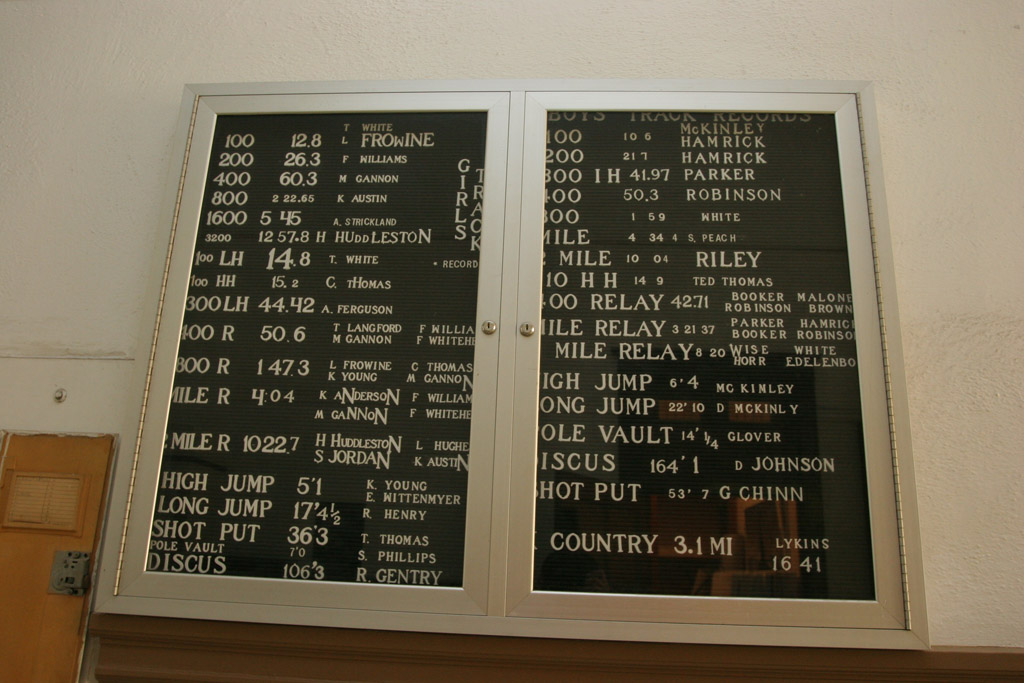 T WHITE
100 12.8 L FROWINE
200 26.3 F WILLIAMS
400 60.3 M GANNON
800 2 22.65 K AUSTIN
1600 5 45 A. STRICKLAND
3200 12 57.8 H HUDDLESTON
100 LH 14.8 T. WHITE
100 HH 15.2 C. THOMAS
300 LH 44.42 A. FERGUSON
400 R 50.6 T LANGFORD F WILLIA
M GANNON F WHITEHE
800 R 1 47.3 L FROWINE C THOMAS
K YOUNG M GANNON
MILE R 4:04 K ANDERSON F WILLIAM
M GANNON F WHITEHE
MILE R 10 22.7 H HUDDLESTON L HUGHE
S JORDAN K AUSTIN
HIGH JUMP 5'1 K. YOUNG
E. WITTENMYER
LONG JUMP 17'4½ R. HENRY
SHOT PUT 36'3 T. THOMAS
POLE VAULT 7'0 S. PHILLIPS
DISCUS 106'3 R. GENTRY
GIRLS
TRACK
• RECORD
BOYS TRACK RECORDS
MCKINLEY
100 10 6 HAMRICK
200 21 7 HAMRICK
300 I H 41.97 PARKER
400 50.3 ROBINSON
800 1 59 WHITE
MILE 4 34 4 S. PEACH
2 MILE 10 04 RILEY
110 H H 14 9 TED THOMAS
400 RELAY 42.71 BOOKER MALONE
ROBINSON BROWN
MILE RELAY 3 21 37 PARKER HAMRIC
BOOKER ROBINSO
MILE RELAY 8 20 WISE WHITE
HORR EDELENBO
HIGH JUMP 6'4 MC KINLEY
LONG JUMP 22'10 D MCKINLY
POLE VAULT 14'¼ GLOVER
DISCUS 164'1 D JOHNSON
SHOT PUT 53'7 G CHINN
COUNTRY 3.1 MI LYKINS
16 41